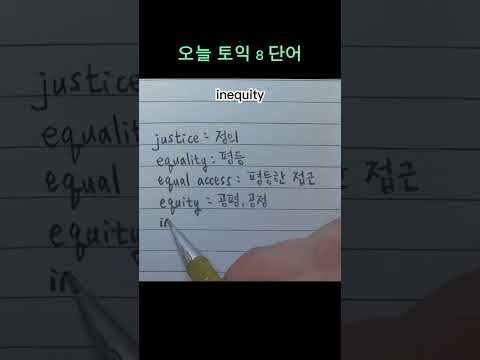 오늘 토익 8 단어
inequity
justice : 정의
equality : 평등
equal access : 평등한 접근
equity : 공평, 공정
in